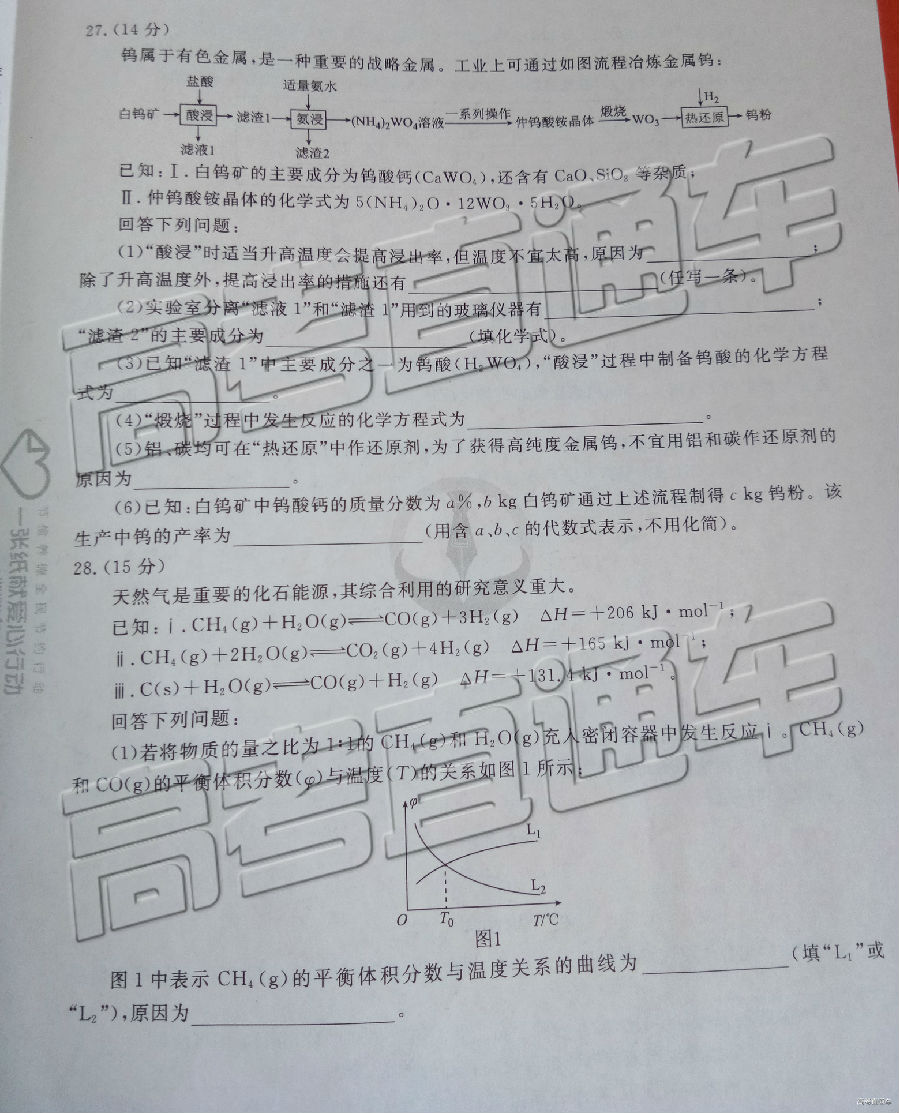 27.(14 分)
钨属于有色金属,是一种重要的战略金属。工业上可通过如图流程冶炼金属钨:
盐酸 适量氨水 H₂
白钨矿 酸浸 滤渣1 氨浸 (NH₄)₂WO₄溶液 一系列操作 仲钨酸铵晶体 煅烧 WO₃ 热还原 钨粉
滤液1 滤渣2
已知:Ⅰ.白钨矿的主要成分为钨酸钙(CaWO₄),还含有 CaO、SiO₂ 等杂质;
Ⅱ.仲钨酸铵晶体的化学式为 5(NH₄)₂O·12WO₃·5H₂O。
回答下列问题:
(1)“酸浸”时适当升高温度会提高浸出率,但温度不宜太高,原因为 ;
除了升高温度外,提高浸出率的措施还有 (任写一条)。
(2)实验室分离“滤液 1”和“滤渣 1”用到的玻璃仪器有 ;
“滤渣 2”的主要成分为 (填化学式)。
(3)已知“滤渣 1”中主要成分之一为钨酸(H₂WO₄),“酸浸”过程中制备钨酸的化学方程
式为 。
(4)“煅烧”过程中发生反应的化学方程式为 。
(5)铝、碳均可在“热还原”中作还原剂,为了获得高纯度金属钨,不宜用铝和碳作还原剂的
原因为 。
(6)已知:白钨矿中钨酸钙的质量分数为 a%,b kg 白钨矿通过上述流程制得 c kg 钨粉。该
生产中钨的产率为 (用含 a、b、c 的代数式表示,不用化简)。
28.(15 分)
天然气是重要的化石能源,其综合利用的研究意义重大。
已知:ⅰ.CH₄(g)+H₂O(g)⇌CO(g)+3H₂(g) ΔH=+206 kJ·mol⁻¹;
ⅱ.CH₄(g)+2H₂O(g)⇌CO₂(g)+4H₂(g) ΔH=+165 kJ·mol⁻¹;
ⅲ.C(s)+H₂O(g)⇌CO(g)+H₂(g) ΔH=+131.4 kJ·mol⁻¹。
回答下列问题:
(1)若将物质的量之比为 1:1的 CH₄(g)和 H₂O(g)充入密闭容器中发生反应ⅰ。CH₄(g)
和 CO(g)的平衡体积分数(φ)与温度(T)的关系如图 1 所示:
φ
L₁
L₂
O T₀ T/℃
图1
图 1 中表示 CH₄(g)的平衡体积分数与温度关系的曲线为 (填“L₁”或
“L₂”),原因为 。
高考直通车
高考直通车
一张纸献爱心行动